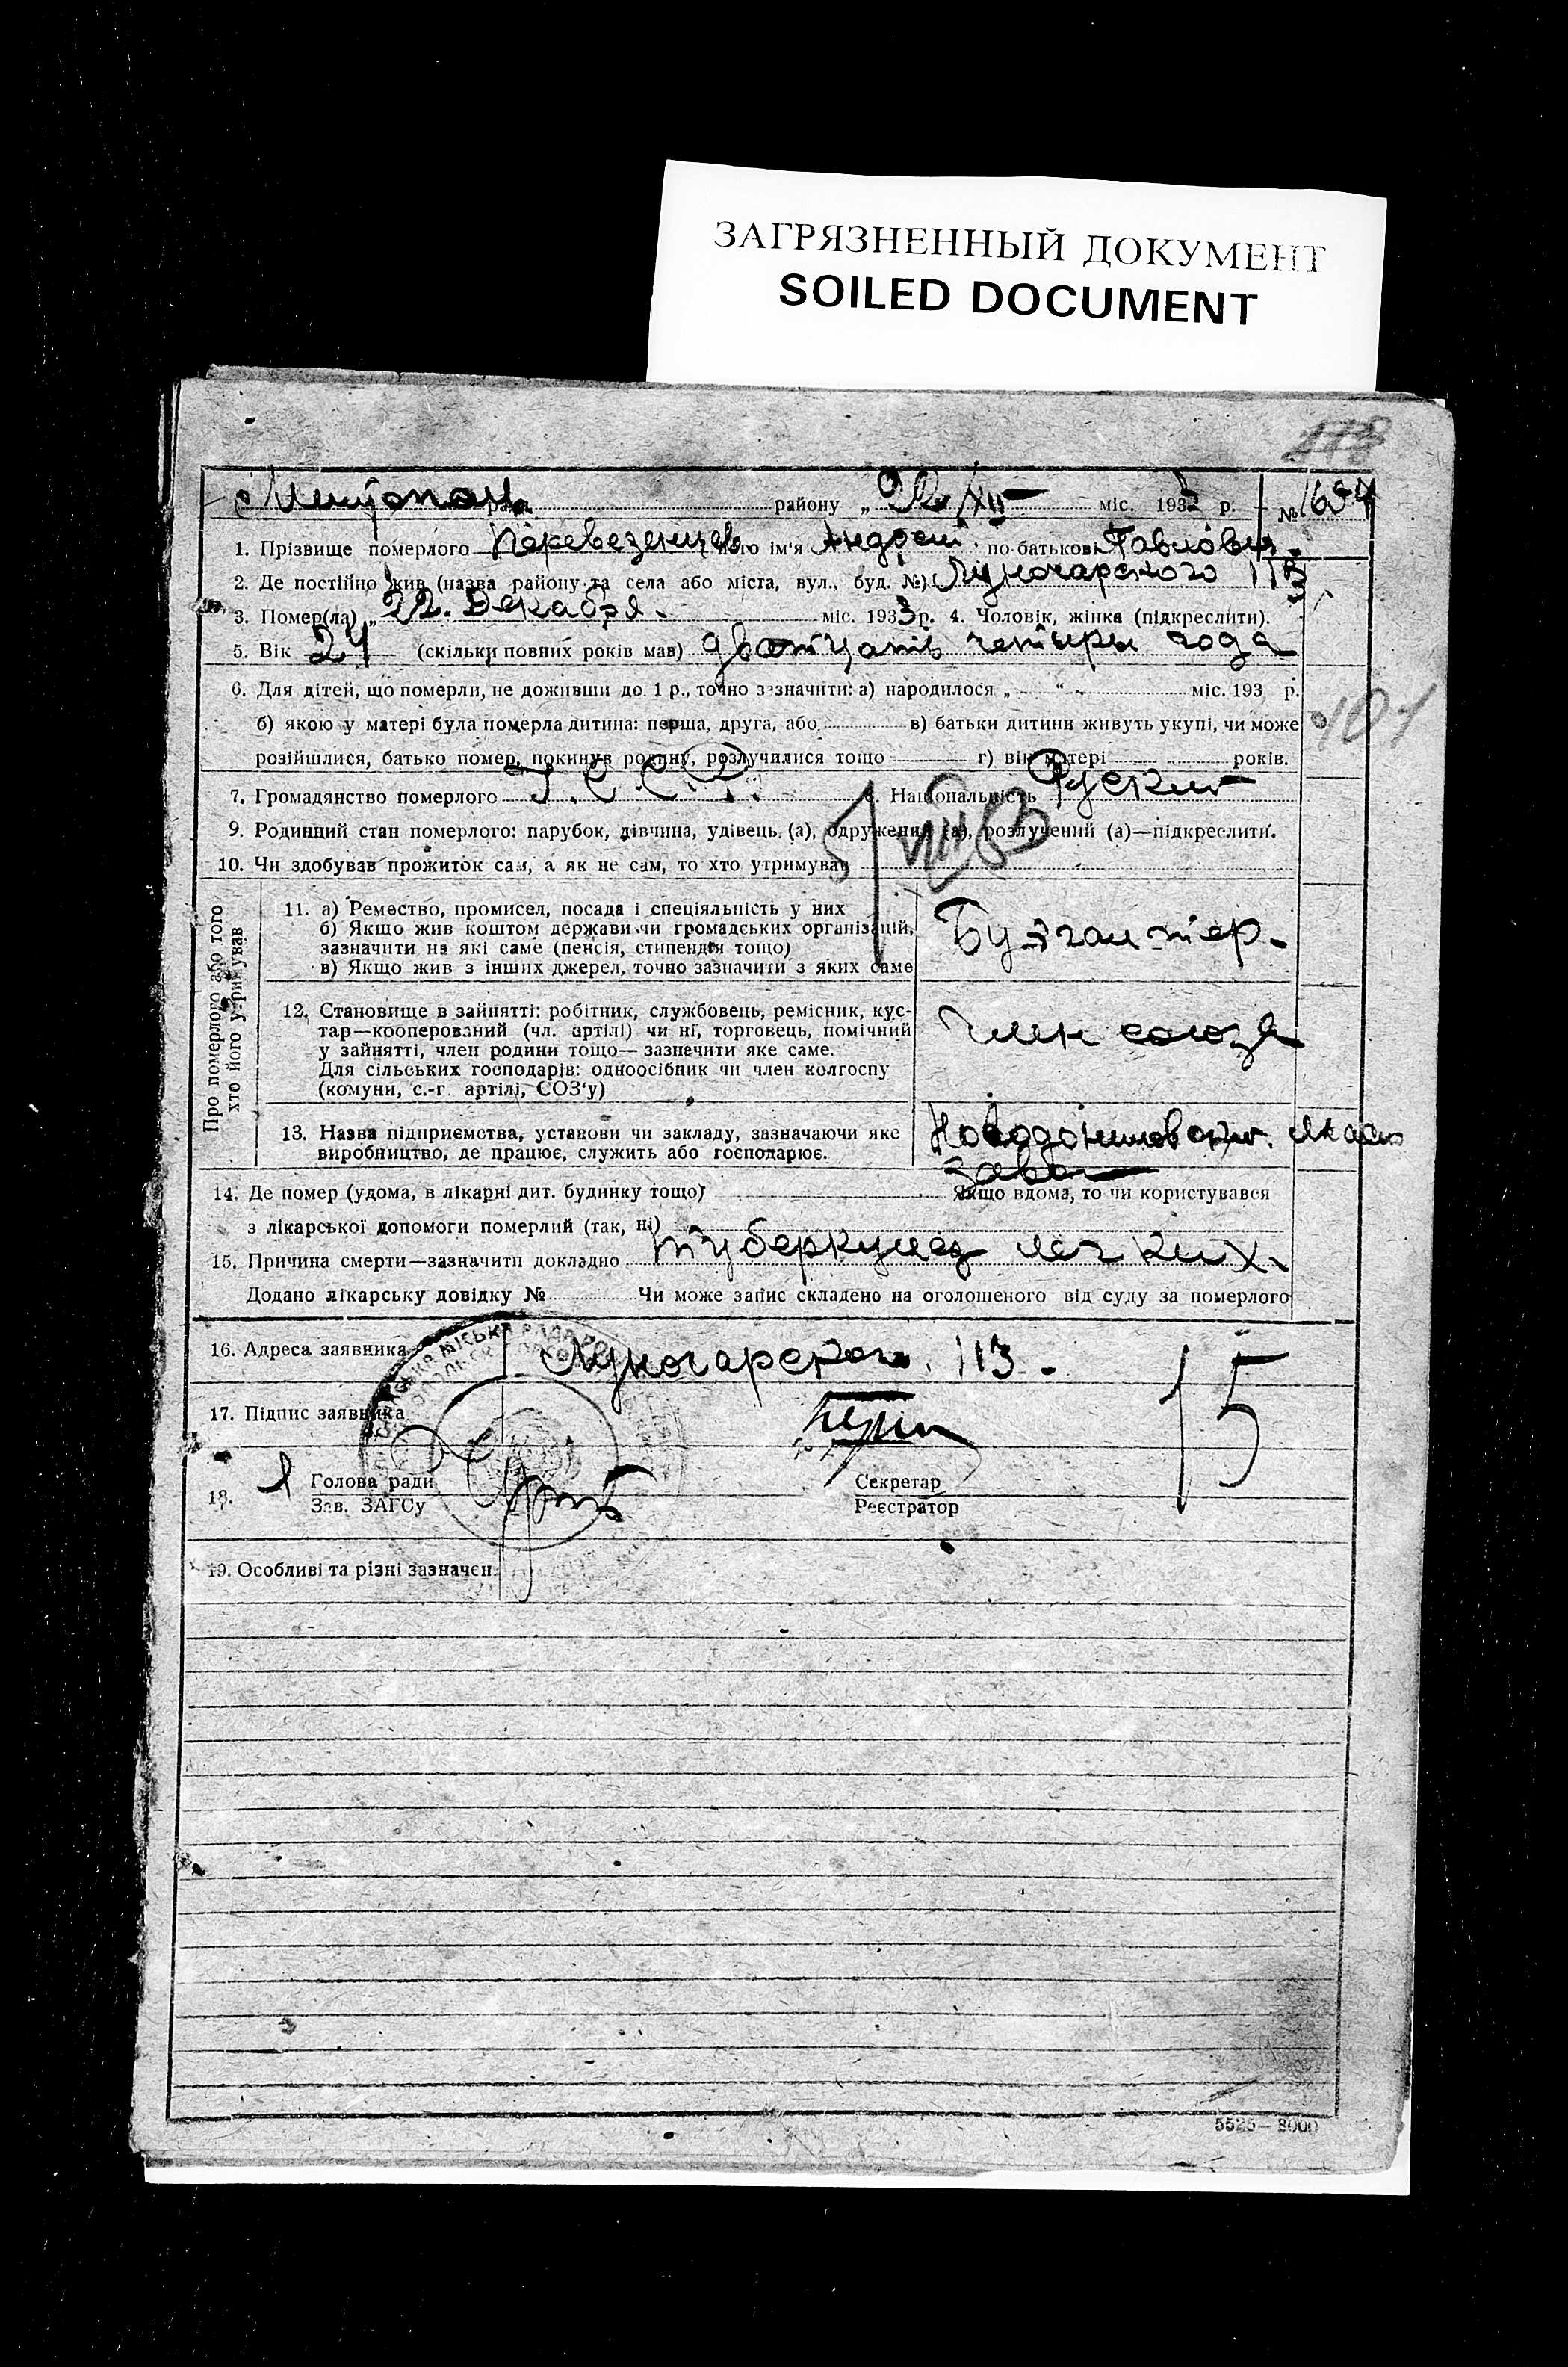 ЗАГРЯЗНЕННЫЙ ДОКУМЕНТ
SOILED DOCUMENT
району „ 22/XII міс. 193 р. № 1654
1. Прізвище померлого Перевезенцев його ім'я Андрей по-батькові Павлович
2. Де постійно жив (назва району та села або міста, вул., буд. №) Луночарского 113
3. Помер(ла) „ 22. Декабря. міс. 1933 р. 4. Чоловік, жінка (підкреслити).
5. Вік 24 (скільки повних років мав) дватцать четыры года
6. Для дітей, що померли, не доживши до 1 р., точно зазначити: а) народилося „ “ міс. 193 р.
б) якою у матері була померла дитина: перша, друга, або в) батьки дитини живуть укупі, чи може
розійшлися, батько помер, покинув родину, розлучилися тощо г) вік матері років.
7. Громадянство померлого У.С.С.Р. Національність Руский
9. Родинний стан померлого: парубок, дівчина, удівець (а), одружений (а), розлучений (а)—підкреслити.
10. Чи здобував прожиток сам, а як не сам, то хто утримував
Про померлого або того
хто його утримував
11. а) Ремество, промисел, посада і спеціяльність у них
б) Якщо жив коштом держави чи громадських організацій,
зазначити на які саме (пенсія, стипендія тощо)
в) Якщо жив з інших джерел, точно зазначити з яких саме
Бухгалтер.
12. Становище в зайнятті: робітник, службовець, ремісник, кус-
тар—кооперований (чл. артілі) чи ні, торговець, помічний
у зайнятті, член родини тощо— зазначити яке саме.
Для сільських господарів: одноосібник чи член колгоспу
(комуни, с.-г. артілі, СОЗ'у)
член союза
13. Назва підприємства, установи чи закладу, зазначаючи яке
виробництво, де працює, служить або господарює.
завод
14. Де помер (удома, в лікарні дит. будинку тощо) Якщо вдома, то чи користувався
з лікарської допомоги померлий (так, ні)
15. Причина смерти—зазначити докладно туберкулез легких.
Додано лікарську довідку № Чи може запис складено на оголошеного від суду за померлого
16. Адреса заявника Луночарского. 113.
15
17. Підпис заявника
18. Голова ради
Зав. ЗАГСу
Секретар
Реєстратор
19. Особливі та різні зазначен.
5525—8000